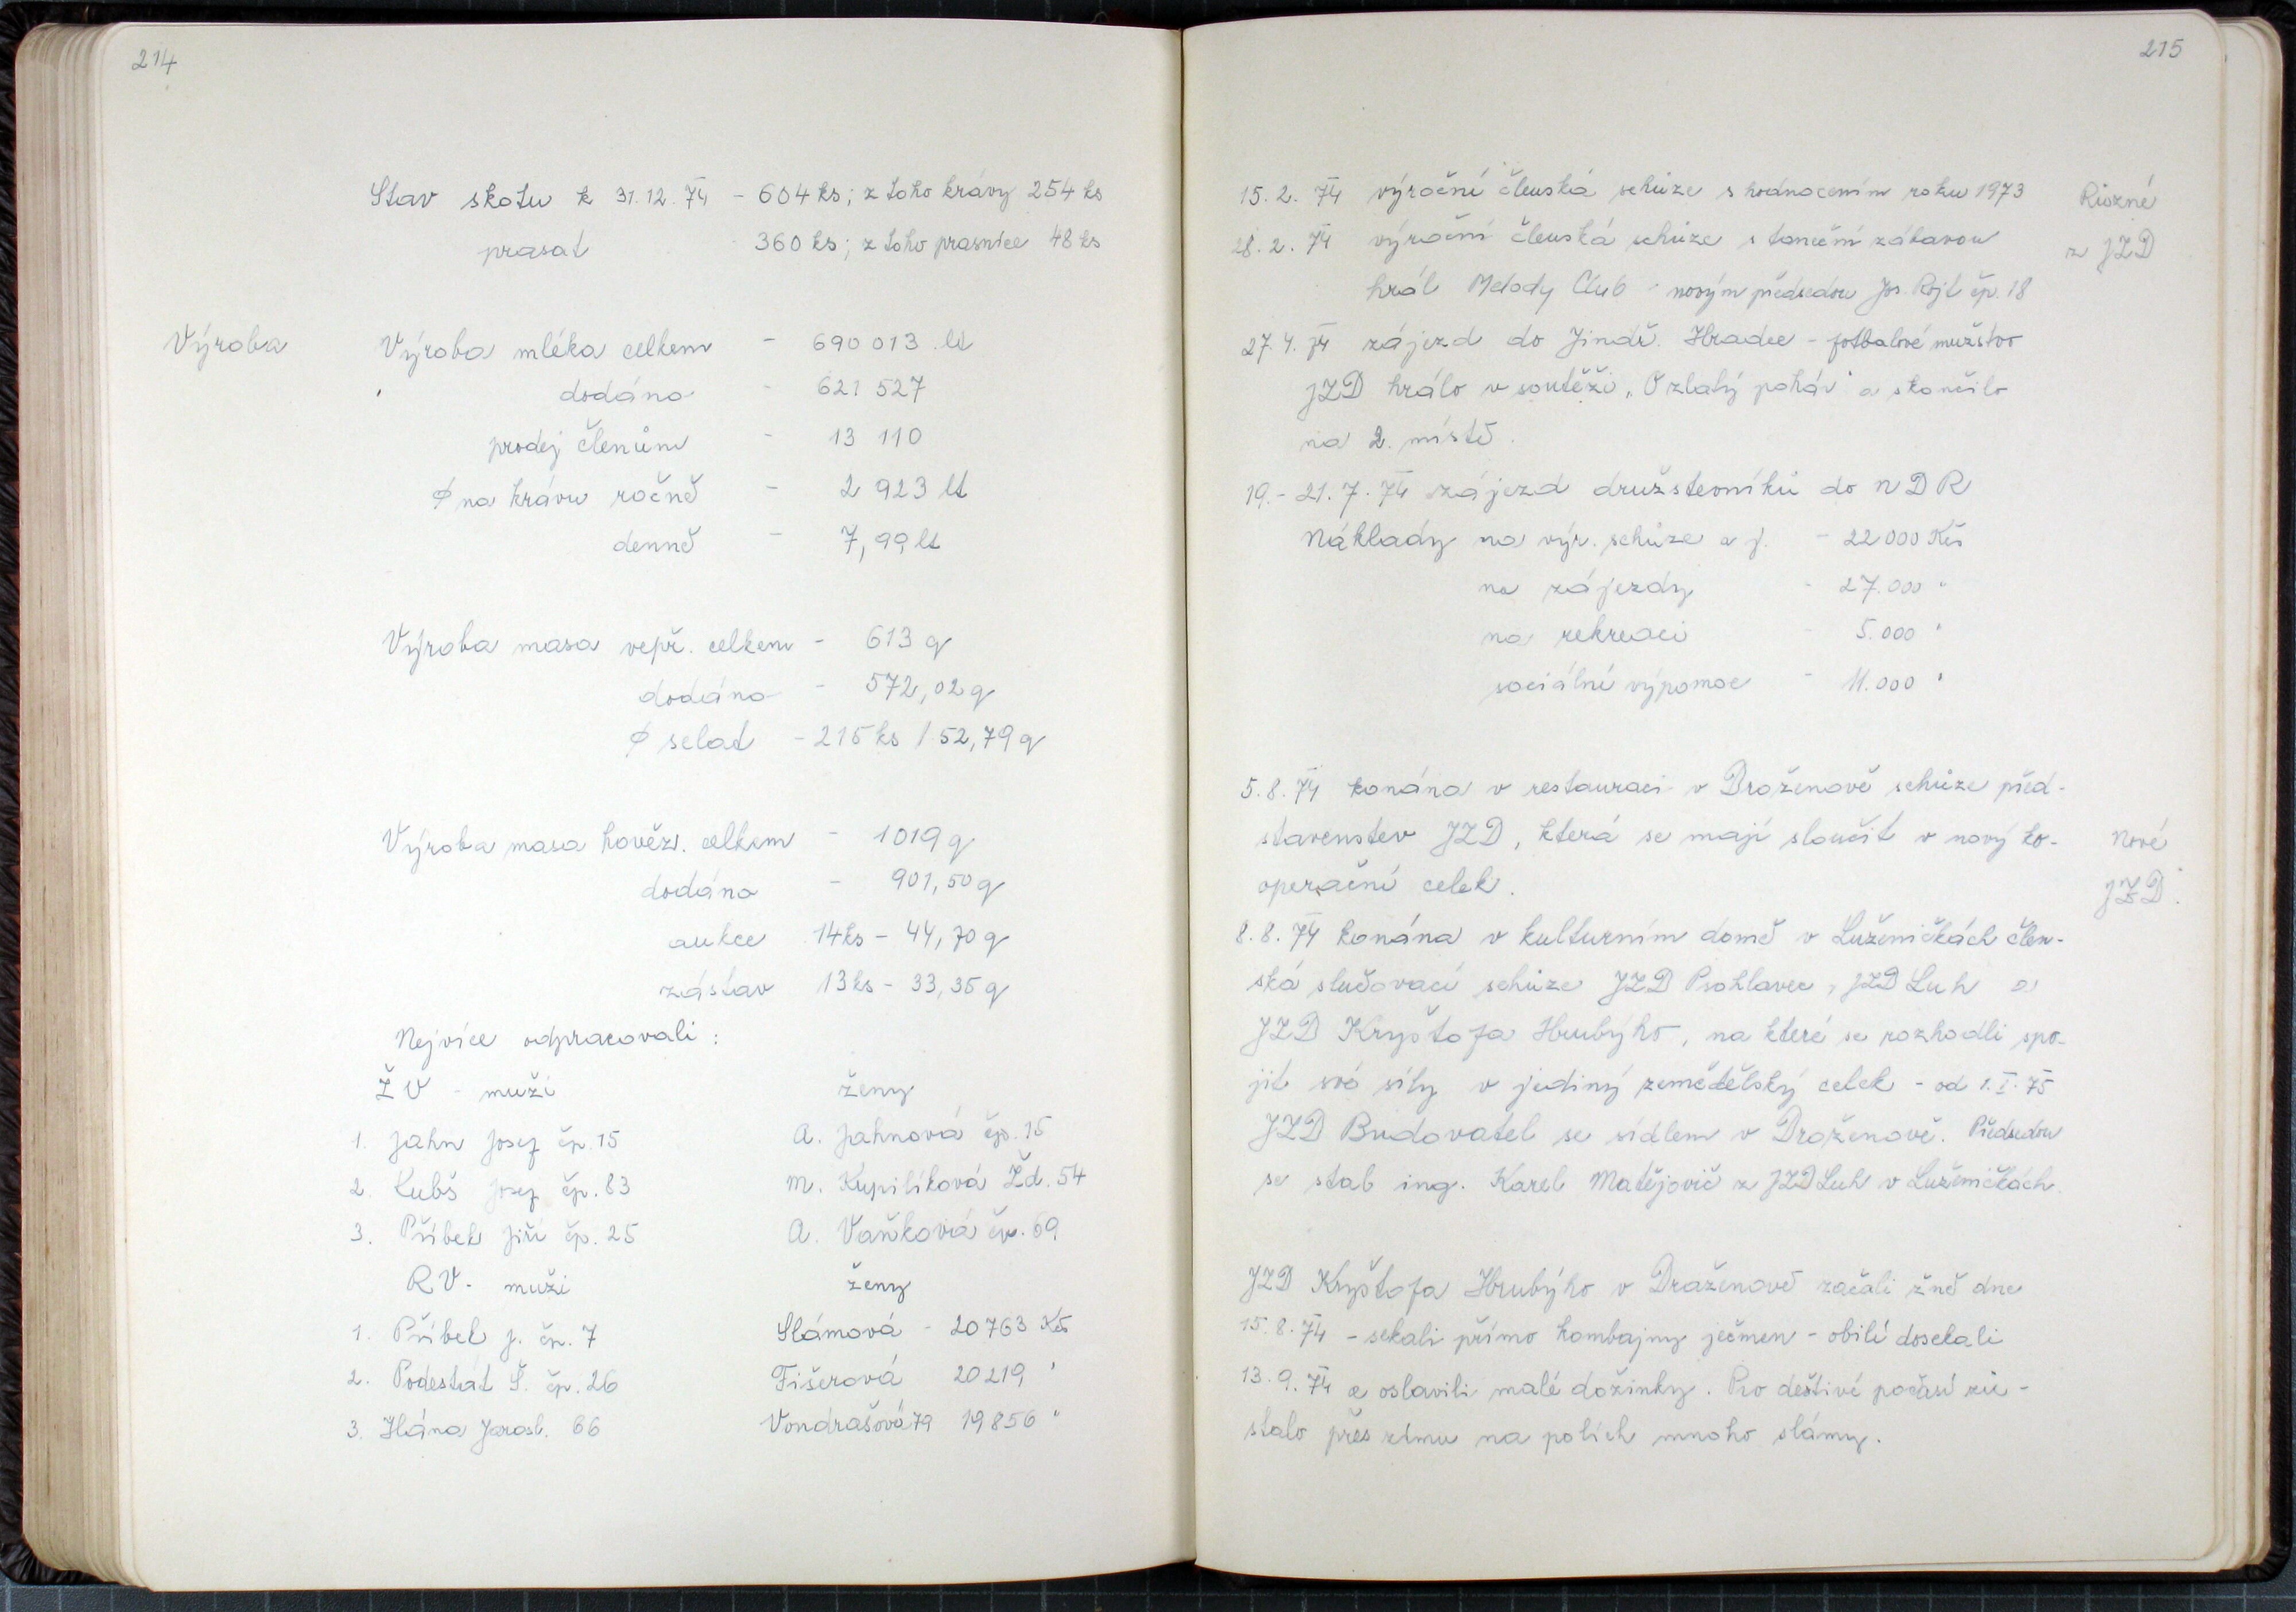 214
Stav skotu k 31.12.74 - 604 ks; z toho krávy 254 ks
prasat 360 ks; z toho prasnice 48 ks
Výroba
Výroba mléka celkem - 690 013 lt
dodáno - 621 527
prodej členům - 13 110
Ø na krávu ročně - 2 923 lt
denně - 7,99 lt
Výroba masa vepř. celkem - 613 q
dodáno - 572,02 q
Ø selat - 215 ks / 52,79 q
Výroba masa hověz. celkem - 1019 q
dodáno - 901,50 q
aukce 14 ks - 44,70 q
zástav 13 ks - 33,35 q
Nejvíce odpracovali:
ŽV - muži ženy
1. Jahn Josef čp. 15 A. Jahnová čp. 15
2. Kubš Josef čp. 83 M. Kupilíková Žd. 54
3. Příbek Jiří čp. 25 A. Vaňková čp. 69
RV - muži ženy
1. Příbek J. čp. 7 Slámová - 20 763 Kčs
2. Podestát Š. čp. 26 Fišerová 20 219 "
3. Hána Jarosl. 66 Vondrašová 79 19 856 "
215
15. 2. 74 výroční členská schůze s hodnocením roku 1973
Různé
z JZD
28. 2. 74 výroční členská schůze s taneční zábavou
hrál Melody Club - novým předsedou Jos. Rojt čp. 18
27. 4. 74 zájezd do Jindř. Hradce - fotbalové mužstvo
JZD hrálo v soutěži „O zlatý pohár" a skončilo
na 2. místě.
19. - 21. 7. 74 zájezd družstevníků do NDR
Náklady na výr. schůze a j. - 22 000 Kčs
na zájezdy - 27.000 "
na rekreaci - 5.000 "
sociální výpomoc - 11.000 "
5. 8. 74 konána v restauraci v Draženově schůze před-
stavenstev JZD, která se mají sloučit v nový ko-
operační celek.
Nové
JZD.
8. 8. 74 konána v kulturním domě v Luženičkách člen-
ská slučovací schůze JZD Psohlavec, JZD Luh a
JZD Kryštofa Hrubýho, na které se rozhodli spo-
jit své síly v jediný zemědělský celek - od 1. I. 75
JZD Budovatel se sídlem v Draženově. Předsedou
se stal ing. Karel Matějovič z JZD Luh v Luženičkách.
JZD Kryštofa Hrubýho v Draženově začali žně dne
15. 8. 74 - sekali přímo kombajny ječmen - obilí dosekali
13. 9. 74 a oslavili malé dožinky. Pro deštivé počasí zů-
stalo přes zimu na polích mnoho slámy.